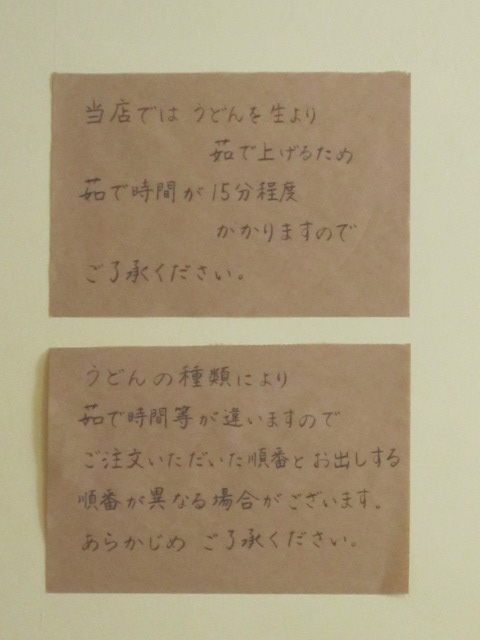 当店では うどんを生より
茹で上げるため
茹で時間が15分程度
かかりますので
ご了承ください。
うどんの種類により
茹で時間等が違いますので
ご注文いただいた順番とお出しする
順番が異なる場合がございます。
あらかじめ ご了承ください。